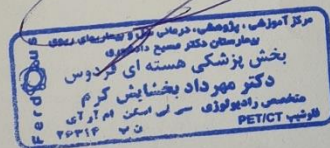 مرکز آموزشی، پژوهشی، درمانی سل و بیماریهای ریوی
بیمارستان دکتر مسیح دانشوری
بخش پزشکی هسته ای فردوس
دکتر مهرداد بخشایش کرم
متخصص رادیولوژی سی تی اسکن ام آر آی
فلوشیپ PET/CT
ن پ ۲۶۳۱۴
Ferdous